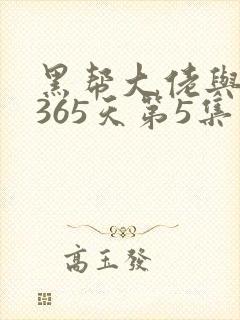 黑帮大佬與
365天第5集
高玉發